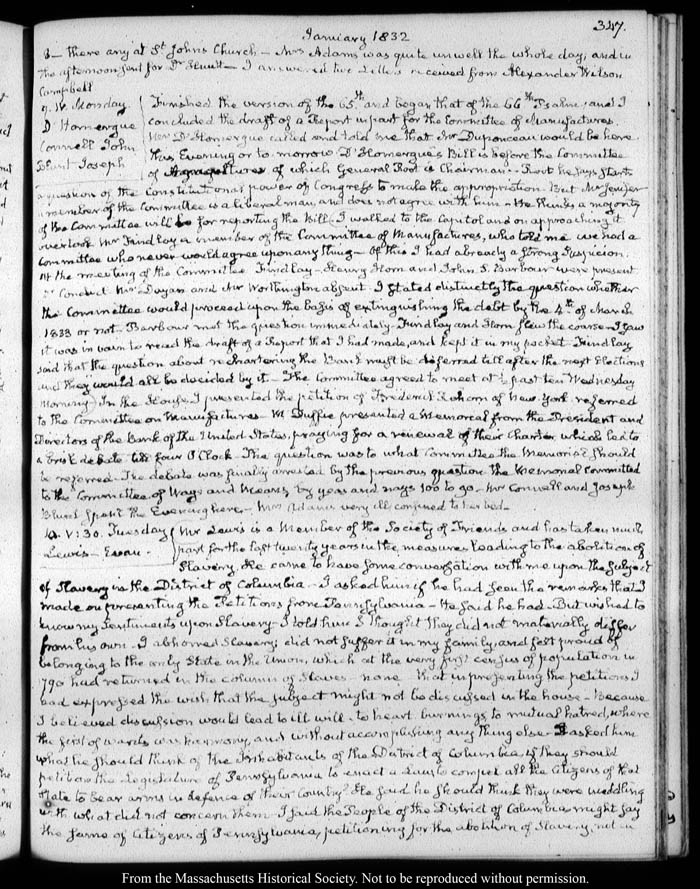 January 1832
347.
8 — there any at St. Johns Church — Mrs Adams was quite unwell the whole day, and in
the afternoon sent for Dr Hunt — I answered two Letters received from Alexander Wilson
Campbell
9. V. Monday
D'Homergue
Connell John
Blunt Joseph
Finished the version of the 65th and began that of the 66th Psalm; and I
concluded the draft of a Report in part for the Committee of Manufactures.
Mr D'Homergue called and told me that Mr Duponceau would be here
this Evening or to-morrow. D'Homergue's Bill is before the Committee
of Agriculture of which General Root is Chairman — Root he says starts
a question of the Constitutional power of Congress to make the appropriation. But Mr Jenifer
a member of the Committee is a liberal man, and does not agree with him — He thinks a majority
of the Committee will be for reporting the Bill. I walked to the Capitol and on approaching it
overtook Mr Findlay a member of the Committee of Manufactures, who told me we had a
Committee who never would agree upon any thing — Of this I had already a strong suspicion.
At the meeting of the Committee Findlay — Henry Horn and John S. Barbour were present
Condict Mr Dayan and Mr Worthington absent. I stated distinctly the question whether
the Committee would proceed upon the basis of extinguishing the debt by the 4th of March
1833 or not — Barbour met the question immediately — Findlay and Horn flew the course — I saw
it was in vain to read the draft of a Report that I had made, and kept it in my pocket — Findlay
said that the question about rechartering the Bank must be deferred till after the next Elections
and they would all be decided by it — The Committee agreed to meet at ½ past ten Wednesday
Morning — In the House I presented the petition of Frederick of New York referred
to the Committee on Manufactures — Mc Duffie presented a Memorial from the President and
Directors of the Bank of the United States, praying for a renewal of their Charter which led to
a brisk debate till four O'Clock. The question was to what Committee the Memorial should
be referred — The debate was finally arrested by the previous question. the Memorial committed
to the Committee of Ways and Means, by yeas and nays 100 to 90 — Mr Connell and Joseph
Blunt spent the Evening here — Mrs Adams very ill confined to her bed —
10. V: 30. Tuesday
Lewis — Evan.
Mr Lewis is a Member of the Society of Friends and has taken much
part for the last twenty years in the measures leading to the abolition of
Slavery. He came to have some conversation with me upon the subject
of Slavery in the District of Columbia — I asked him if he had seen the remarks that I
made on presenting the Petitions from Pennsylvania — He said he had — But wished to
know my sentiments upon Slavery — I told him I thought they did not materially differ
from his own — I abhorred Slavery; did not suffer it in my family, and felt proud of
belonging to the only State in the Union, which at the very first census of population in
1790 had returned in the column of Slaves — none — that in presenting the petitions I
had expressed the wish that the subject might not be discussed in the house — Because
I believed discussion would lead to ill will — to heart burnings, to mutual hatred, where
the first of wants was harmony, and without accomplishing any thing else — I asked him
what he should think of the Inhabitants of the District of Columbia, if they should
petition the Legislature of Pennsylvania to enact a Law to compel all the Citizens of that
State to bear arms in defence of their Country? He said he should think they were meddling
with what did not concern them — I said the People of the District of Columbia might say
the same of Citizens of Pennsylvania, petitioning for the abolition of Slavery, not in
From the Massachusetts Historical Society. Not to be reproduced without permission.